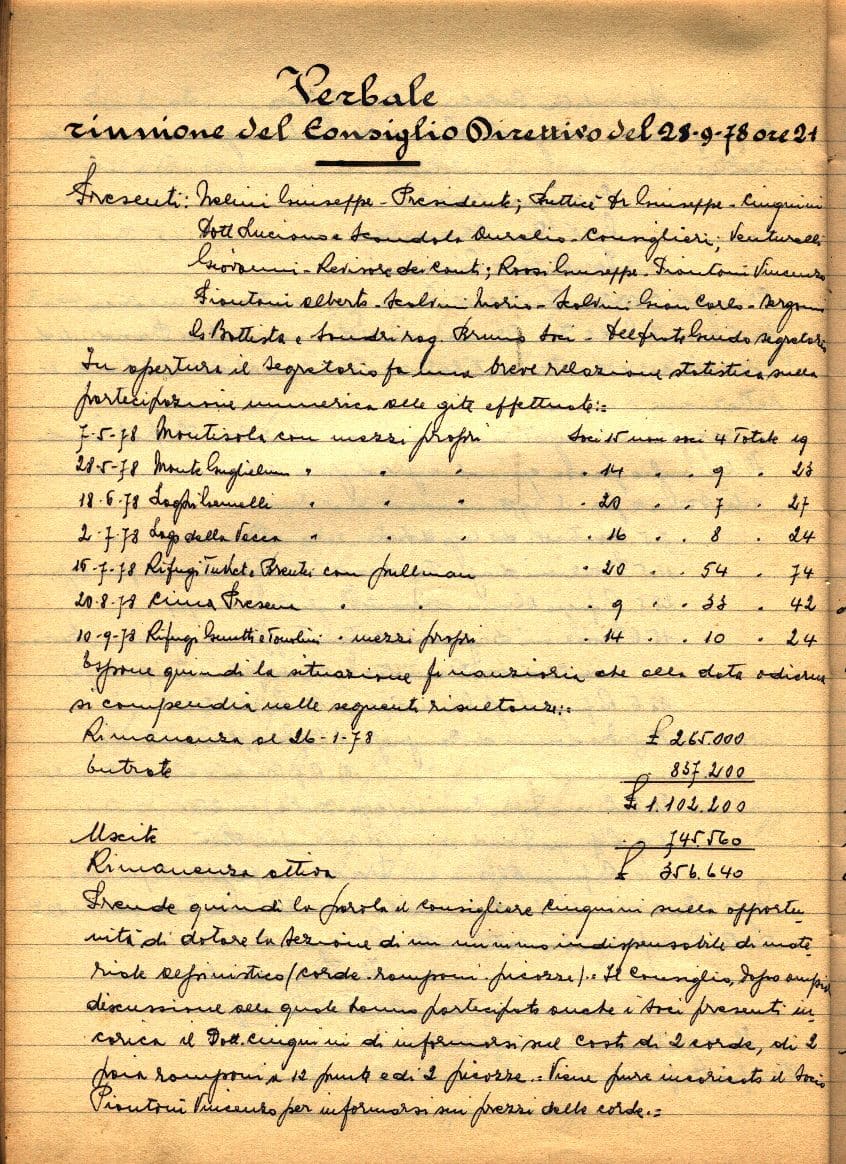 Verbale
riunione del Consiglio Direttivo del 28-9-78 ore 21
Presenti: Nelini Giuseppe - Presidente; Dr Giuseppe - Cinquini
Dott Luciano e Scandola Aurelio - Consiglieri; Venturelli
Giovanni - Revisore dei conti; Rossi Giuseppe - Piantoni Vincenzo
Piantoni Alberto - Scalvini Mario - Scalvini Gian Carlo -
Battista e rag. Bruno Soci - Delfrate Guido segretario
In apertura il segretario fa una breve relazione statistica sulla
partecipazione numerica alle gite effettuate:=
7-5-78 Montisola con mezzi propri Soci 15 non soci 4 Totale 19
28-5-78 Monte Guglielmo " " " . 14 . . 9 . 23
18-6-78 Laghi Gemelli " " " . 20 . . 7 . 27
2-7-78 Lago della Vacca " " " . 16 . . 8 . 24
15-7-78 Rifugi Tuket e Brentei con pullman . 20 . . 54 . 74
20-8-78 Cima Presena " " . 9 . . 33 . 42
10-9-78 Rifugi e Tonolini " mezzi propri . 14 . . 10 . 24
Espone quindi la situazione finanziaria che alla data odierna
si compendia nelle seguenti risultanze:=
Rimanenza al 26-1-78 £ 265.000
Entrate . 837.200
£ 1.102.200
Uscite . 745.560
Rimanenza attiva £ 356.640
Prende quindi la parola il consigliere Cinquini sulla opportu-
nità di dotare la Sezione di un minimo indispensabile di mate-
riale alpinistico (corde - ramponi - picozze).= Il Consiglio, dopo ampia
discussione alla quale hanno partecipato anche i Soci presenti in-
carica il Dott. Cinquini di informarsi sul costo di 2 corde, di 2
paia ramponi a 12 punte e di 2 picozze.= Viene pure incaricato il Socio
Piantoni Vincenzo per informarsi sui prezzi delle corde.=